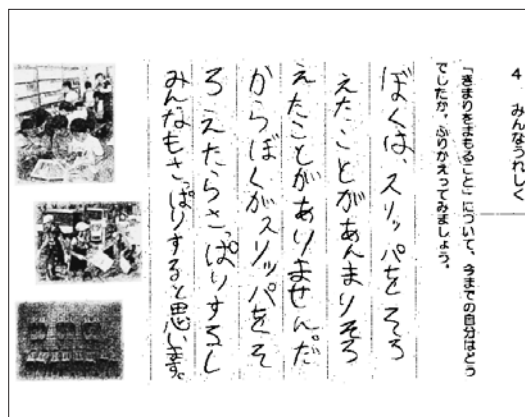 4 みんなうれしく
「きまりをまもること」について、今までの自分はどう
でしたか。ふりかえってみましょう。
ぼくは、スリッパをそろ
えたことがあんまりそろ
えたことがありません。だ
からぼくがスリッパをそ
ろえたらさっぱりするし
みんなもさっぱりすると思います。